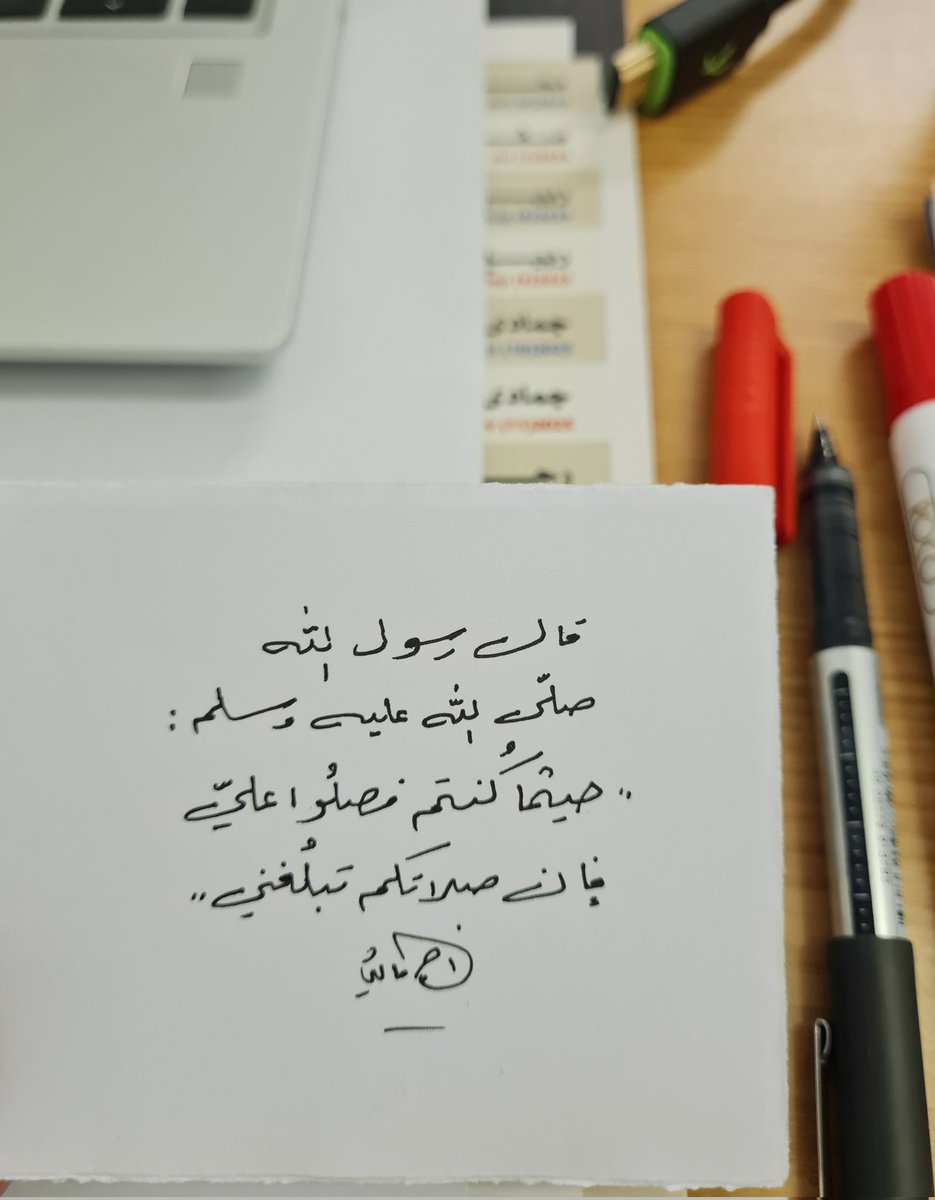 جمادى
جمادى
قال رسول الله
صلّى الله عليه وسلم :
,, حيثما كُنتم فصلُوا عليّ
فإن صلاتكم تبلُغني ,,